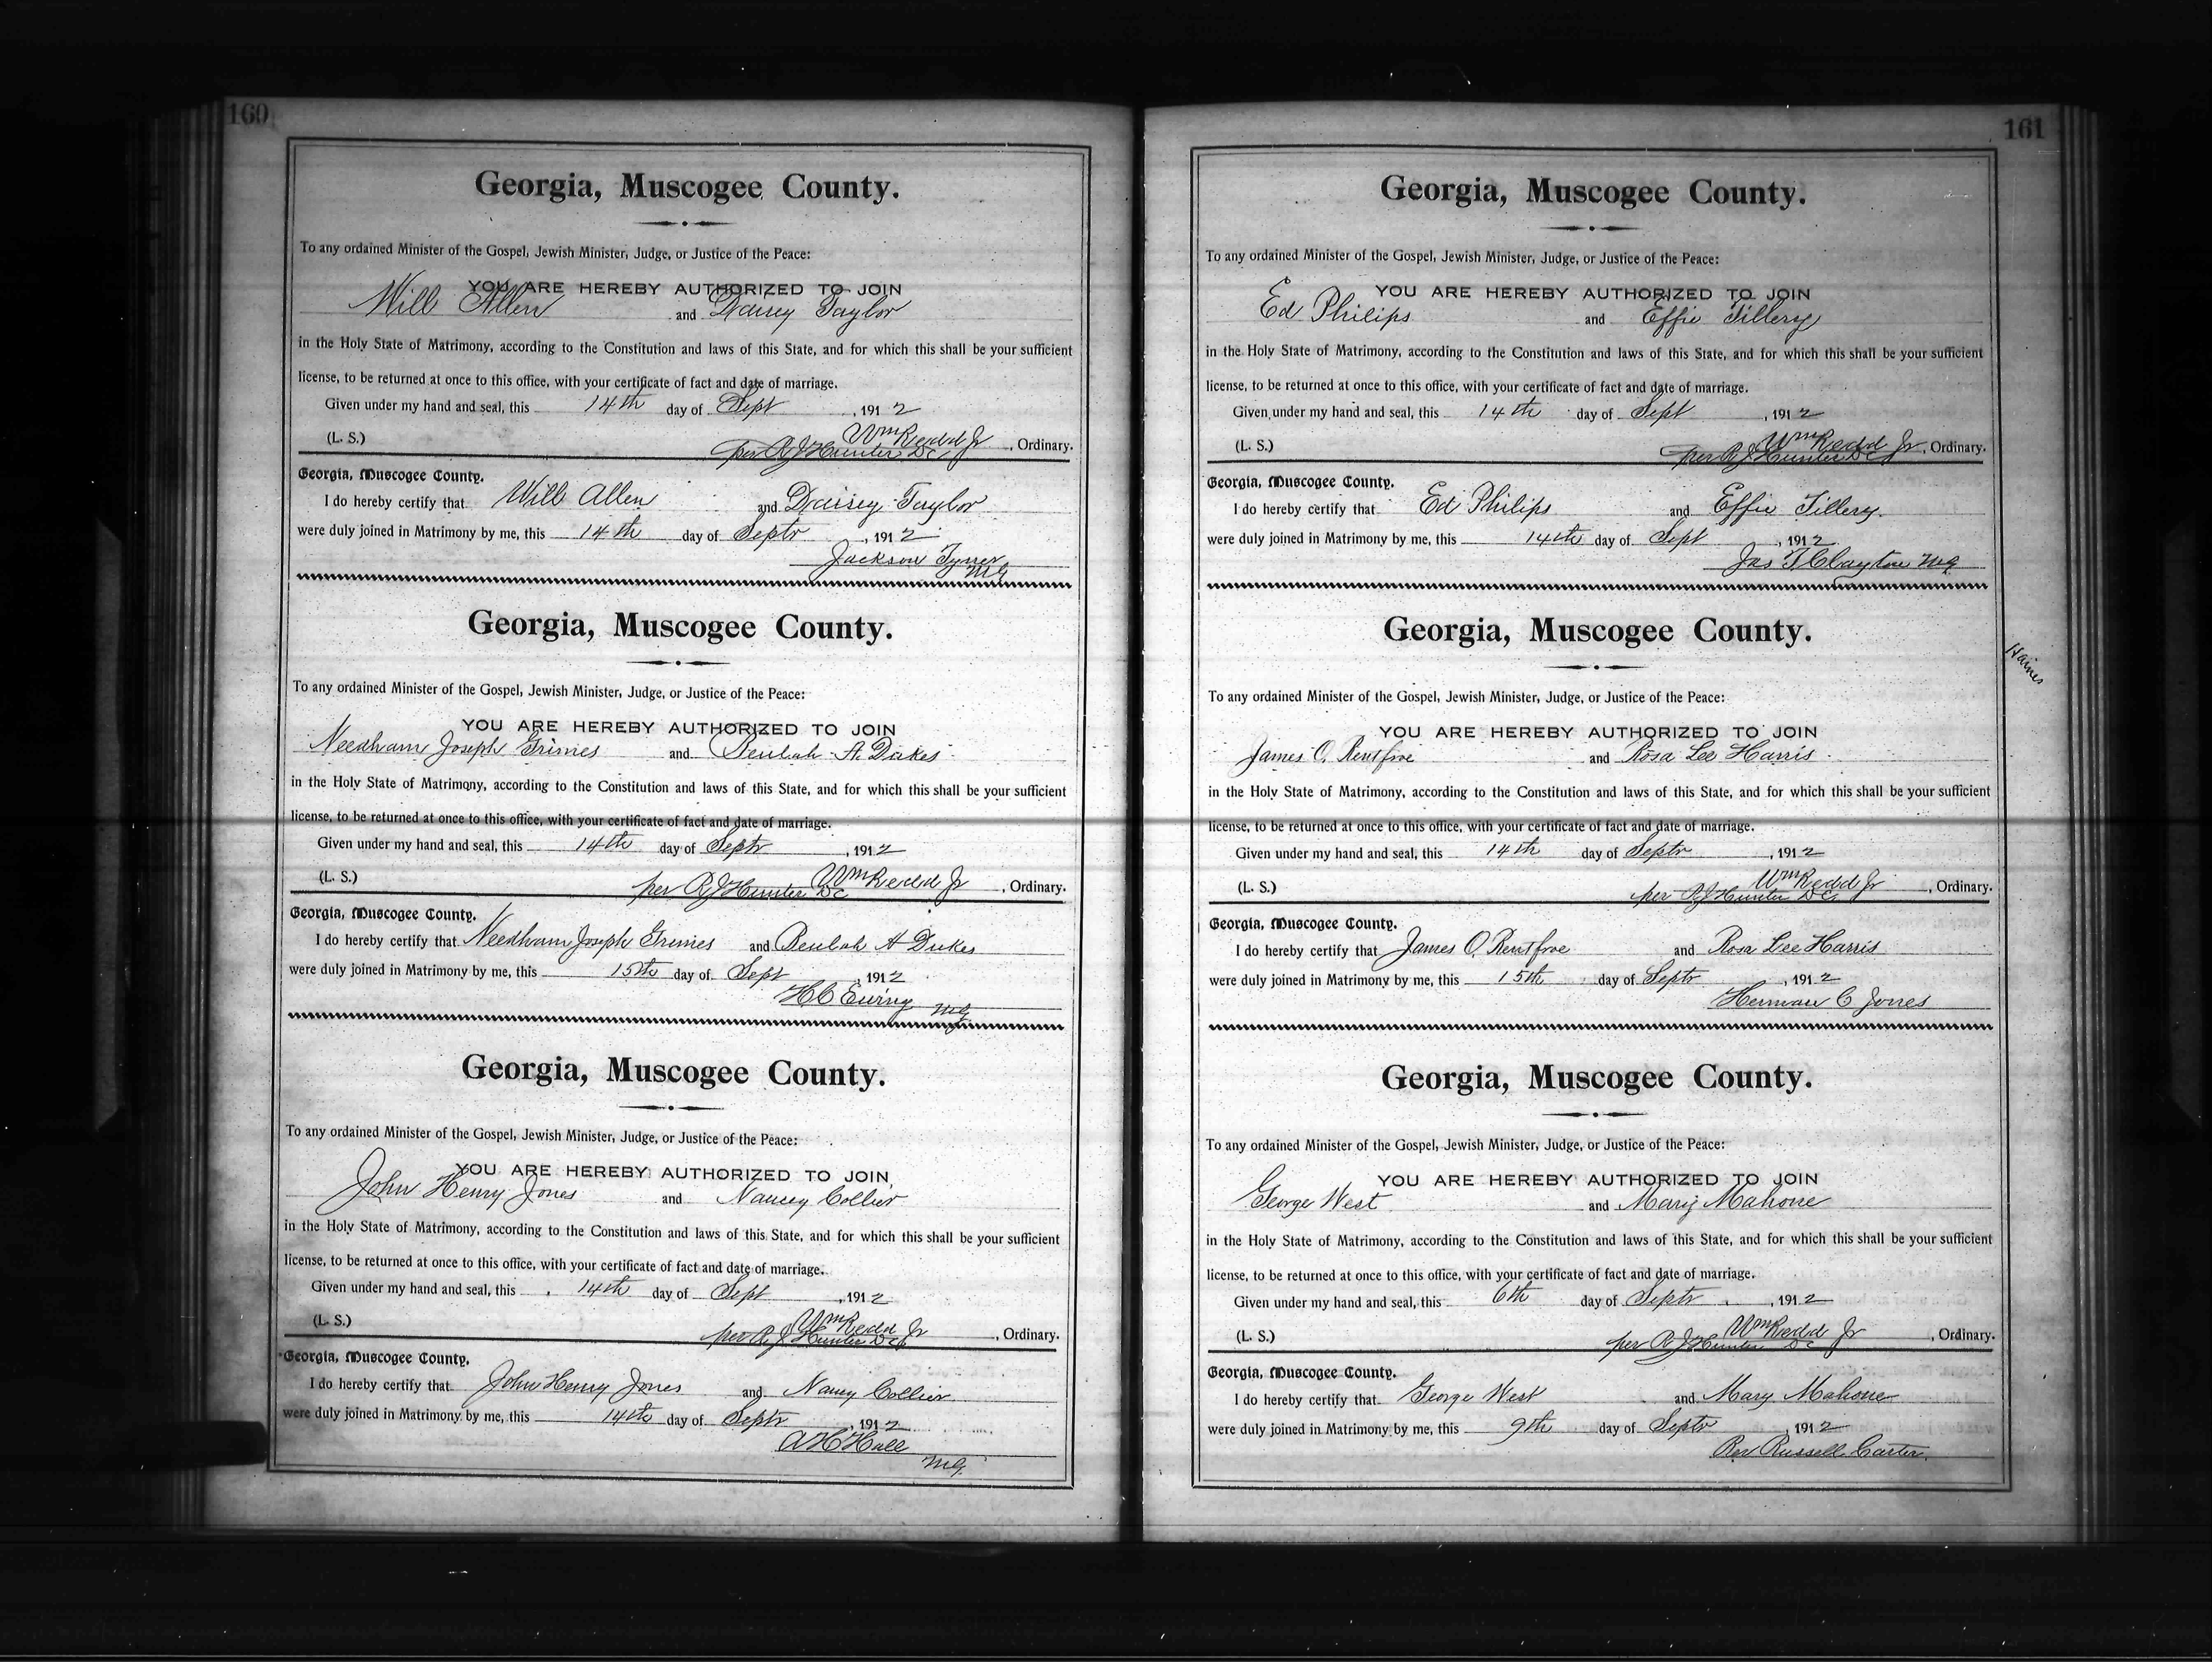 160
Georgia, Muscogee County.
To any ordained Minister of the Gospel, Jewish Minister, Judge, or Justice of the Peace:
YOU ARE HEREBY AUTHORIZED TO JOIN
Will Allen and Daisey Taylor
in the Holy State of Matrimony, according to the Constitution and laws of this State, and for which this shall be your sufficient
license, to be returned at once to this office, with your certificate of fact and date of marriage.
Given under my hand and seal, this 14th day of Sept, 1912
(L. S.) Wm Redd Jr, Ordinary.
per R J Hunter DC
Georgia, Muscogee County.
I do hereby certify that Will Allen and Daisey Taylor
were duly joined in Matrimony by me, this 14th day of Septr, 1912
Jackson Tyner
MG
Georgia, Muscogee County.
To any ordained Minister of the Gospel, Jewish Minister, Judge, or Justice of the Peace:
YOU ARE HEREBY AUTHORIZED TO JOIN
Needham Joseph Grimes and Beulah A. Dukes
in the Holy State of Matrimony, according to the Constitution and laws of this State, and for which this shall be your sufficient
license, to be returned at once to this office, with your certificate of fact and date of marriage.
Given under my hand and seal, this 14th day of Septr, 1912
(L. S.) Wm Redd Jr, Ordinary.
per R J Hunter DC
Georgia, Muscogee County.
I do hereby certify that Needham Joseph Grimes and Beulah A Dukes
were duly joined in Matrimony by me, this 15th day of Sept, 1912
H C Ewing
MG
Georgia, Muscogee County.
To any ordained Minister of the Gospel, Jewish Minister, Judge, or Justice of the Peace:
YOU ARE HEREBY AUTHORIZED TO JOIN
John Henry Jones and Nancy Collier
in the Holy State of Matrimony, according to the Constitution and laws of this State, and for which this shall be your sufficient
license, to be returned at once to this office, with your certificate of fact and date of marriage.
Given under my hand and seal, this 14th day of Sept, 1912
(L. S.) Wm Redd Jr, Ordinary.
per R J Hunter DC
Georgia, Muscogee County.
I do hereby certify that John Henry Jones and Nancy Collier
were duly joined in Matrimony by me, this 14th day of Septr, 1912
A H Hall
MG
161
Georgia, Muscogee County.
To any ordained Minister of the Gospel, Jewish Minister, Judge, or Justice of the Peace:
YOU ARE HEREBY AUTHORIZED TO JOIN
Ed Philips and Effie Tillery
in the Holy State of Matrimony, according to the Constitution and laws of this State, and for which this shall be your sufficient
license, to be returned at once to this office, with your certificate of fact and date of marriage.
Given under my hand and seal, this 14th day of Sept, 1912
(L. S.) Wm Redd Jr, Ordinary.
per R J Hunter DC
Georgia, Muscogee County.
I do hereby certify that Ed Philips and Effie Tillery.
were duly joined in Matrimony by me, this 14th day of Sept, 1912
Jas T Clayton MG
Georgia, Muscogee County.
Haines
To any ordained Minister of the Gospel, Jewish Minister, Judge, or Justice of the Peace:
YOU ARE HEREBY AUTHORIZED TO JOIN
James O. Rentfroe and Rosa Lee Harris
in the Holy State of Matrimony, according to the Constitution and laws of this State, and for which this shall be your sufficient
license, to be returned at once to this office, with your certificate of fact and date of marriage.
Given under my hand and seal, this 14th day of Septr, 1912
(L. S.) Wm Redd Jr, Ordinary.
per R J Hunter DC
Georgia, Muscogee County.
I do hereby certify that James O. Rentfroe and Rosa Lee Harris
were duly joined in Matrimony by me, this 15th day of Septr, 1912
Herman C Jones
Georgia, Muscogee County.
To any ordained Minister of the Gospel, Jewish Minister, Judge, or Justice of the Peace:
YOU ARE HEREBY AUTHORIZED TO JOIN
George West and Mary Mahone
in the Holy State of Matrimony, according to the Constitution and laws of this State, and for which this shall be your sufficient
license, to be returned at once to this office, with your certificate of fact and date of marriage.
Given under my hand and seal, this 6th day of Septr, 1912
(L. S.) Wm Redd Jr, Ordinary.
per R J Hunter DC
Georgia, Muscogee County.
I do hereby certify that George West and Mary Mahone
were duly joined in Matrimony by me, this 9th day of Septr, 1912
Rev Russell Carter